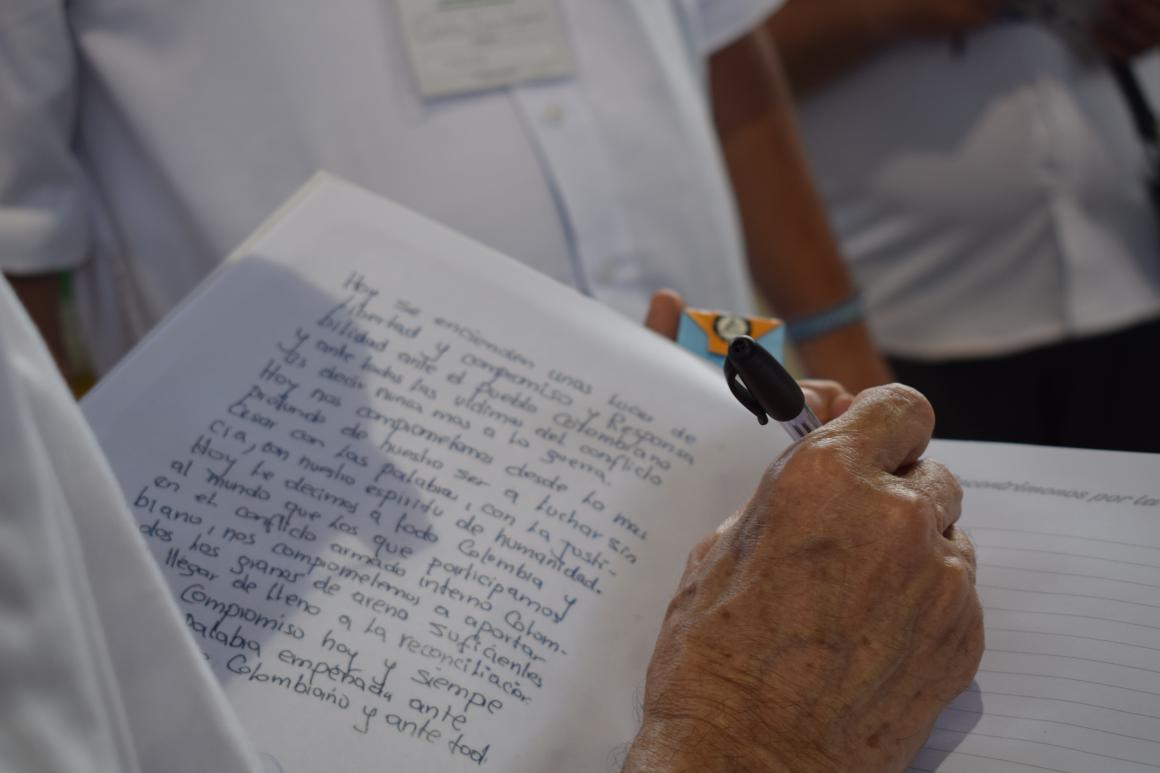 Hoy se encienden unas luces de
libertad y compromiso y Responsa
bilidad ante el Pueblo Colombiano
y ante todas las victimas del conflicto
les decir nunca mas a la guerra.
Hoy nos comprometemos desde lo mas
Profundo de nuestro ser a luchar sin
Cesar con las palabras, con la justi-
cia, con nuestro espiritu de humanidad.
Hoy le decimos a toda Colombia y
al mundo que los que participamos
en el conflicto armado interno Colom-
biano, nos comprometemos a aportar
dos los granos de arena suficientes
llegar de lleno a la reconciliación
Compromiso hoy y siempe
palabra empeñada ante
Colombiano y ante tod
contrémonos por la